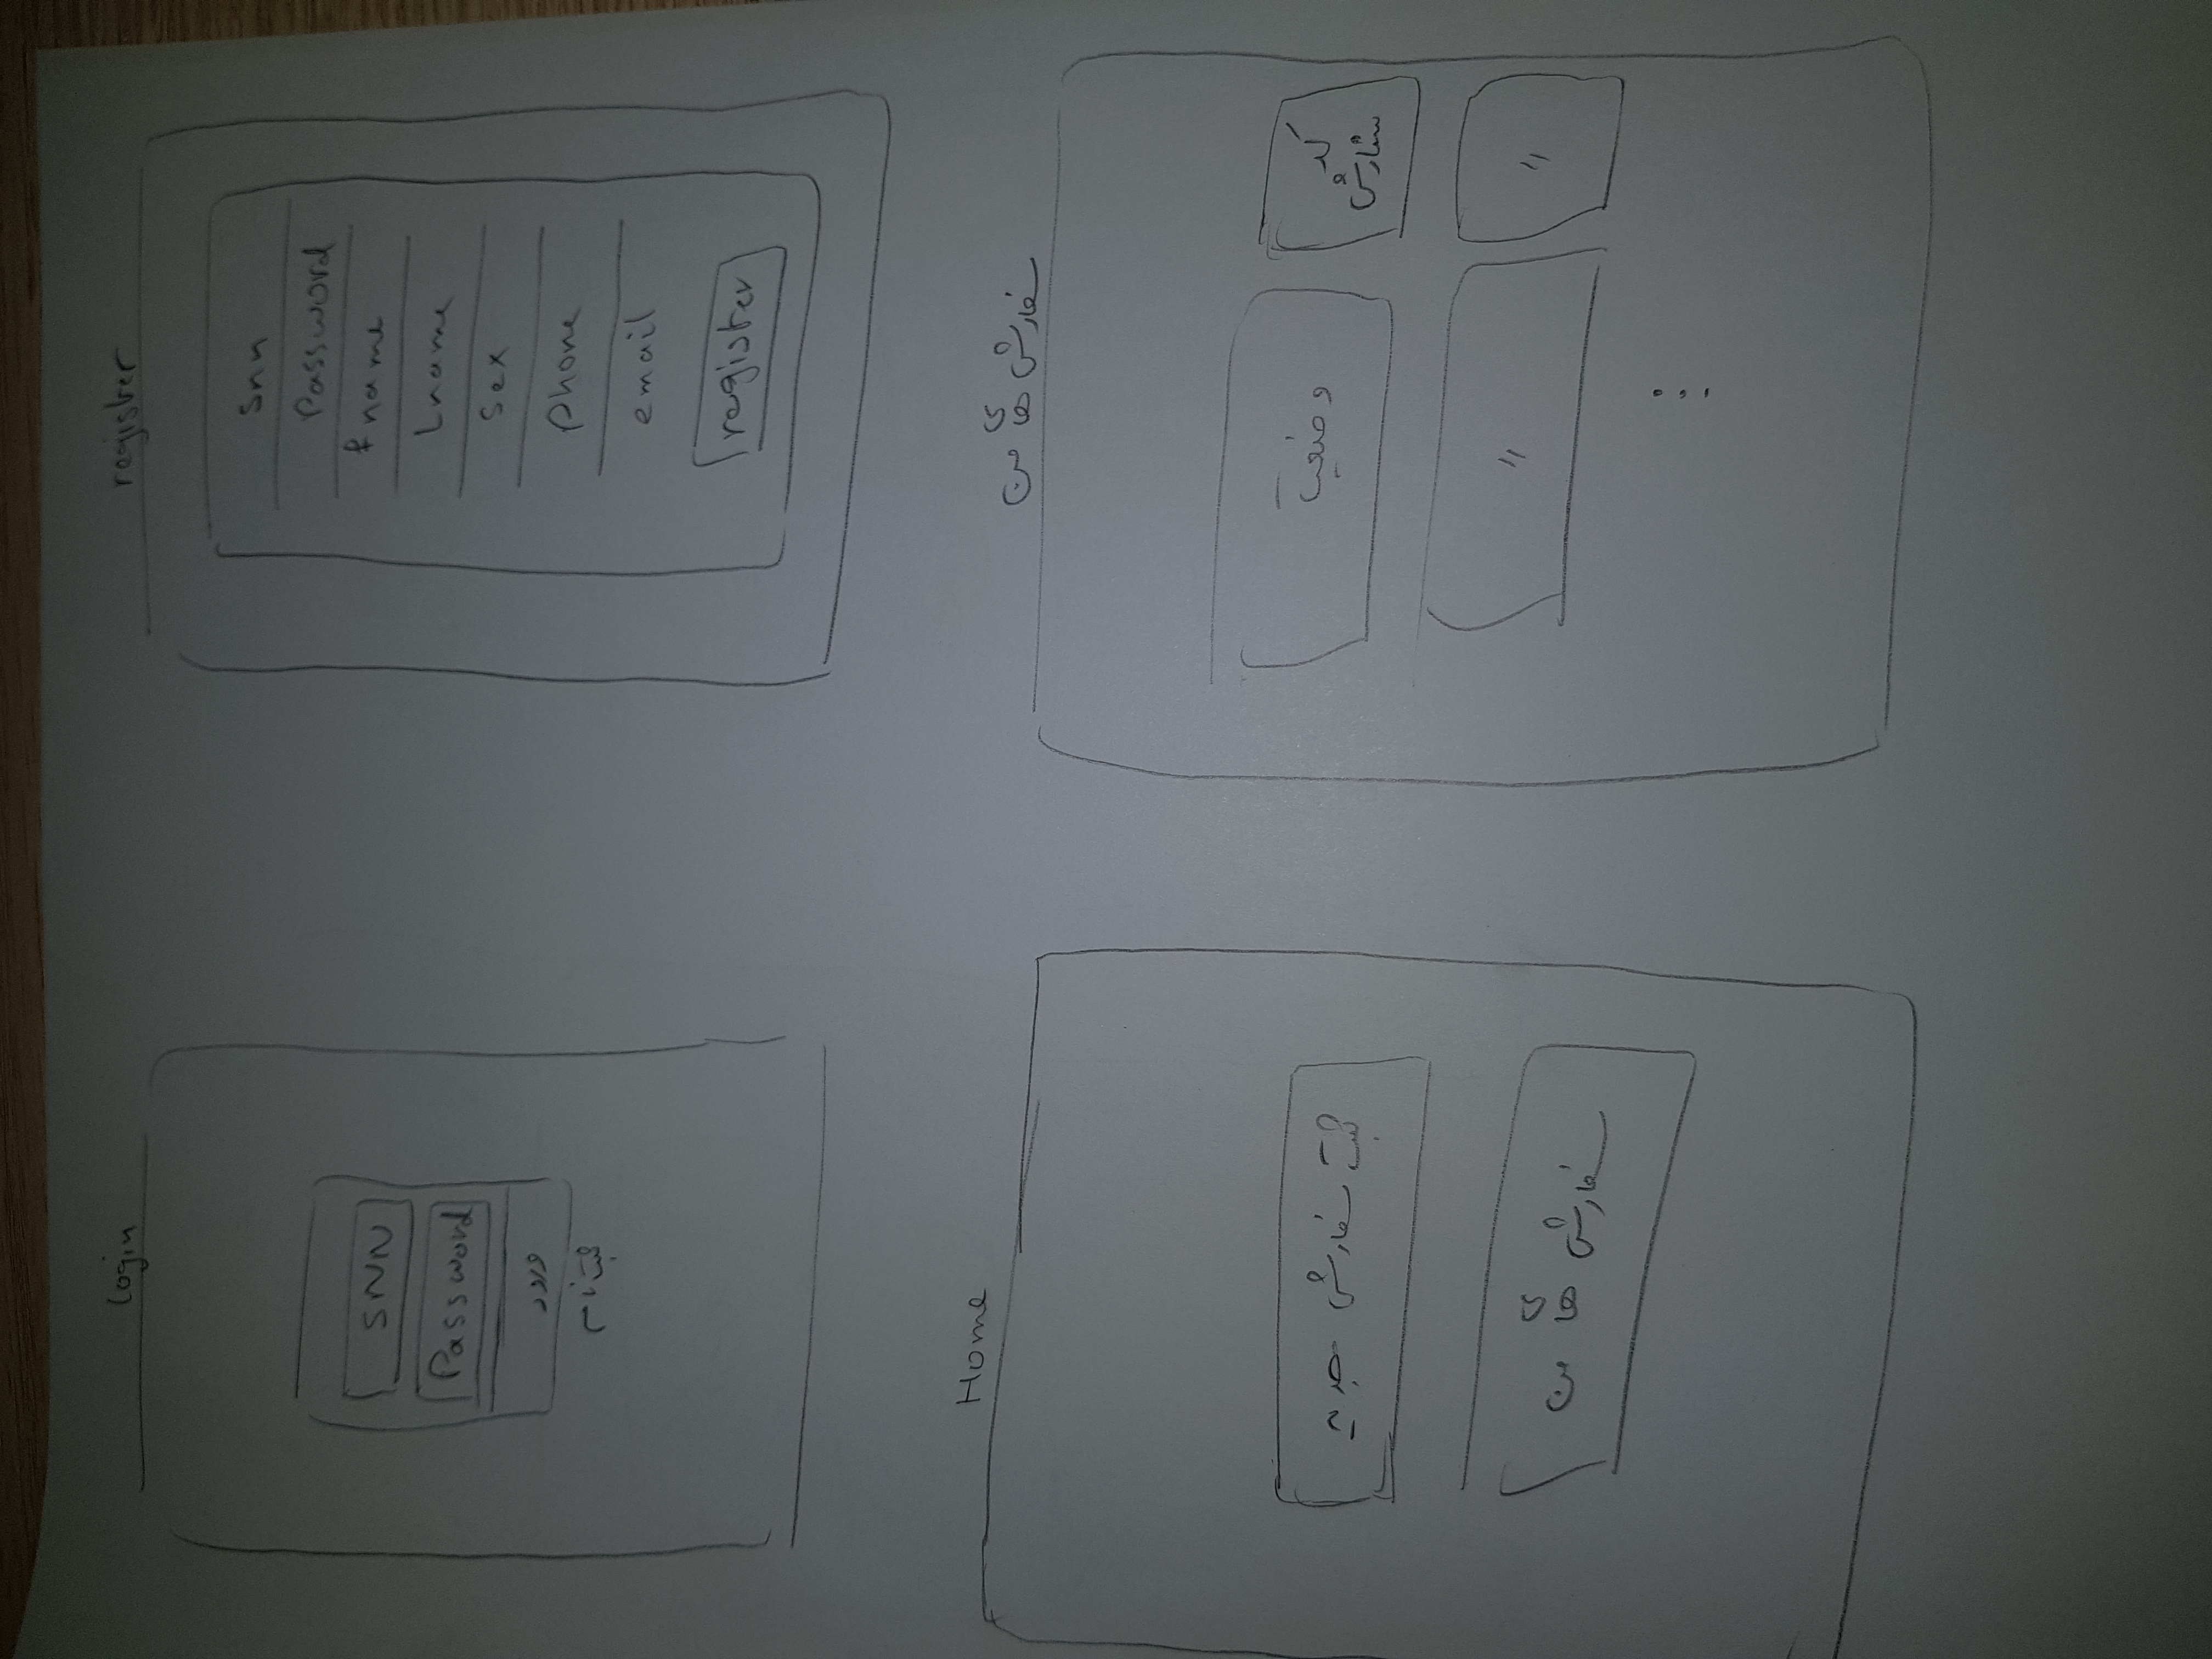 login
SNN
Password
ورود
ثبت نام
register
snn
Password
fname
Lname
sex
phone
email
register
Home
ثبت سفارش جدید
سفارش های من
سفارش های من
کد
سفارش
وضعیت
"
"